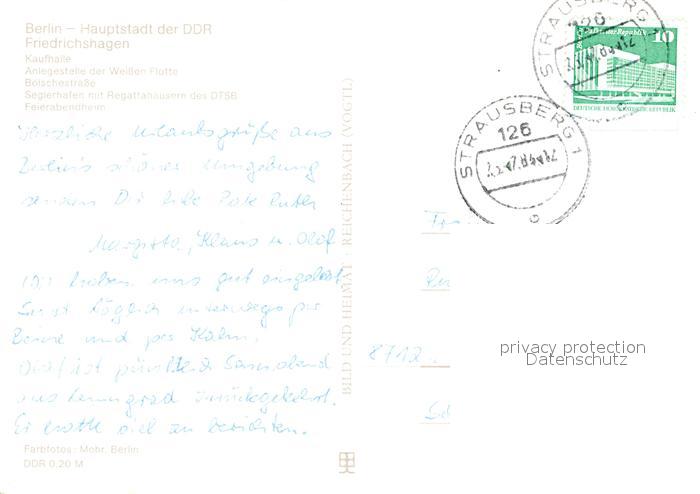 Berlin – Hauptstadt der DDR
Friedrichshagen
Kaufhalle
Anlegestelle der Weißen Flotte
Bölschestraße
Seglerhafen mit Regattahäusern des DTSB
Feierabendheim
Herzliche Urlaubsgrüße aus
Berlin's schöner Umgebung
senden Dir liebe
Margitta, Klaus u. Olaf
Wir haben uns gut eingelebt
Sind täglich unterwegs per
Beine und per Kahn.
Olaf ist pünktlich Sonnabend
aus Leningrad zurückgekehrt.
Er hatte viel zu berichten.
Farbfotos: Mohr, Berlin
DDR 0,20 M
BILD UND HEIMAT · REICHENBACH (VOGTL)
STRAUSBERG
126
Palast der Republik
10
DEUTSCHE DEMOKRATISCHE REPUBLIK
STRAUSBERG 1
126
8712
privacy protection
Datenschutz